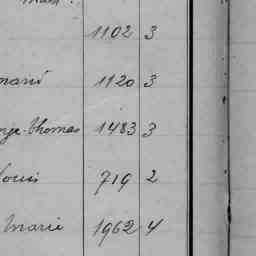 1102 3
mand 1120 3
nge-Thomas 1483 3
Louis 719 2
Marie 1962 4